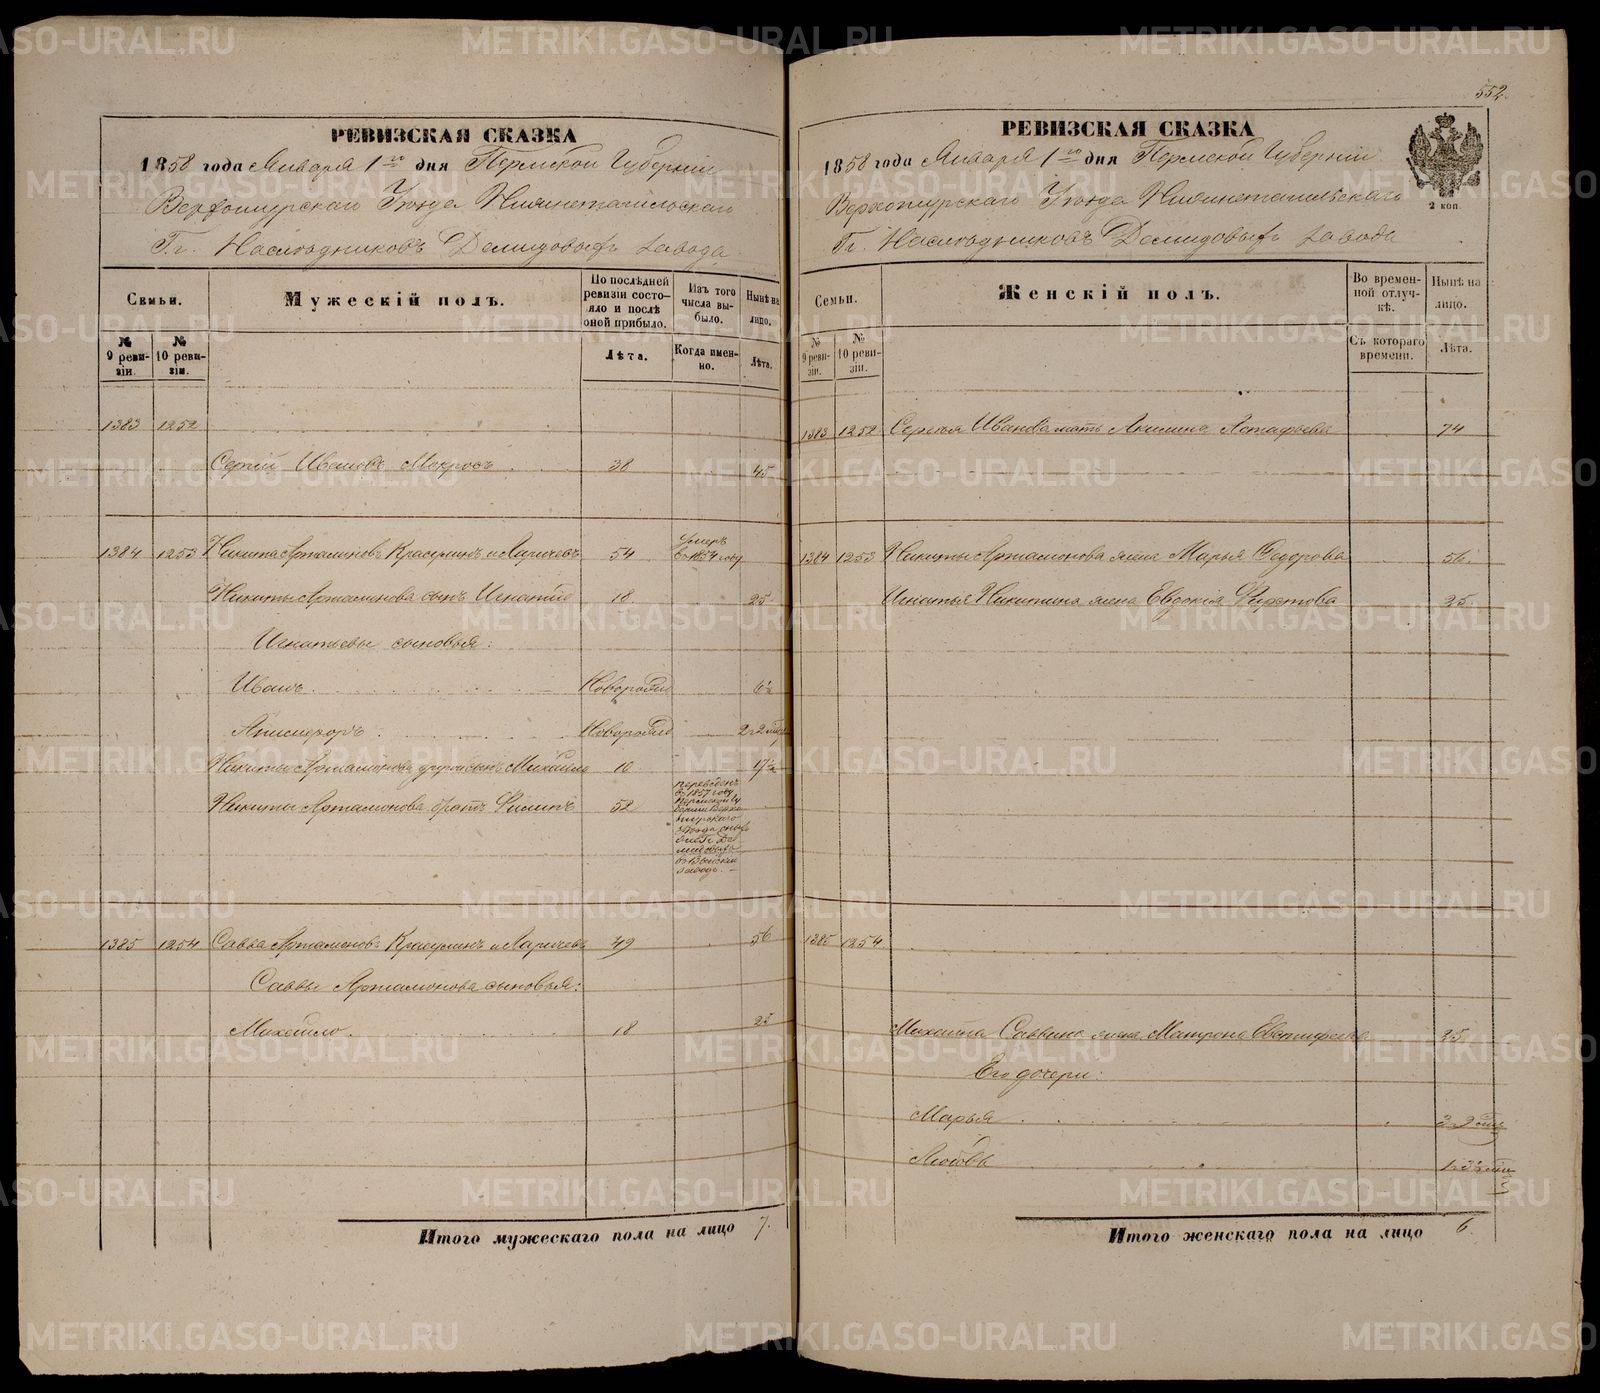 РЕВИЗСКАЯ СКАЗКА
1858 года Января 1го дня Пермской Губернии
Верхотурскаго Уѣзда Нижнетагильскаго
Гг. Наслѣдниковъ Демидовыхъ завода
Семьи.
№ 9 ревизіи.
№ 10 ревизіи.
Мужескій полъ.
По послѣдней ревизіи состояло и послѣ оной прибыло.
Лѣта.
Изъ того числа выбыло.
Когда именно.
Нынѣ на лицо.
Лѣта.
1383 1252
Сергій Ивановъ Мокросъ 38 45
1384 1253 Никита Артамоновъ Красулинъ и Ларичевъ 54 Умеръ въ 1854 году
Никиты Артамонова сынъ Игнатій 18 25
Игнатьевы сыновья:
Иванъ Новорожд 6½
Новорожд 2 2 мѣс
Никиты Артамонова другой сынъ Михайло 10 17½
Никиты Артамонова братъ Филипъ 52
переведенъ
въ 1857 году
Пермской Гу
берніи Верхо
турскаго
Уѣзда
Гг. Де
мидовыхъ
въ Выйской
заводъ.
1385 1254 Савва Артамоновъ Красулинъ и Ларичевъ 49 56
Саввы Артамонова сыновья:
Михайло 18 25
Итого мужескаго пола на лицо 7.
552.
РЕВИЗСКАЯ СКАЗКА
1858 года Января 1го дня Пермской Губерніи
Верхотурскаго Уѣзда Нижнетагильскаго
Гг. Наслѣдниковъ Демидовыхъ завода
2 коп.
Семьи.
№ 9 ревизіи.
№ 10 ревизіи.
Женскій полъ.
Во временной отлучкѣ.
Съ котораго времени.
Нынѣ на лицо.
Лѣта.
1383 1252 Сергѣя Иванова мать Акилина Астафьева 74
1384 1253 Никиты Артамонова жена Марья Федорова 56.
Игнатья Никитина жена Евдокія 25.
1385 1254
Михайла Саввина жена Матрона Евстифеева 25.
Его дочери:
Марья 3 9 мѣс
Любовь
Итого женскаго пола на лицо 6.